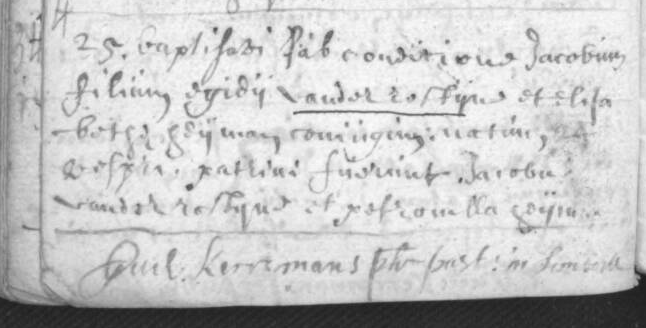 25. baptisavi sub conditione Jacobum
filium egidij vander rostijne et elisa
bethe heijman coniugum natum 24
vespri. patrini fuerunt Jacobus
vander rostijne et petronella heijm
Guil. Kerremans pbr past: in